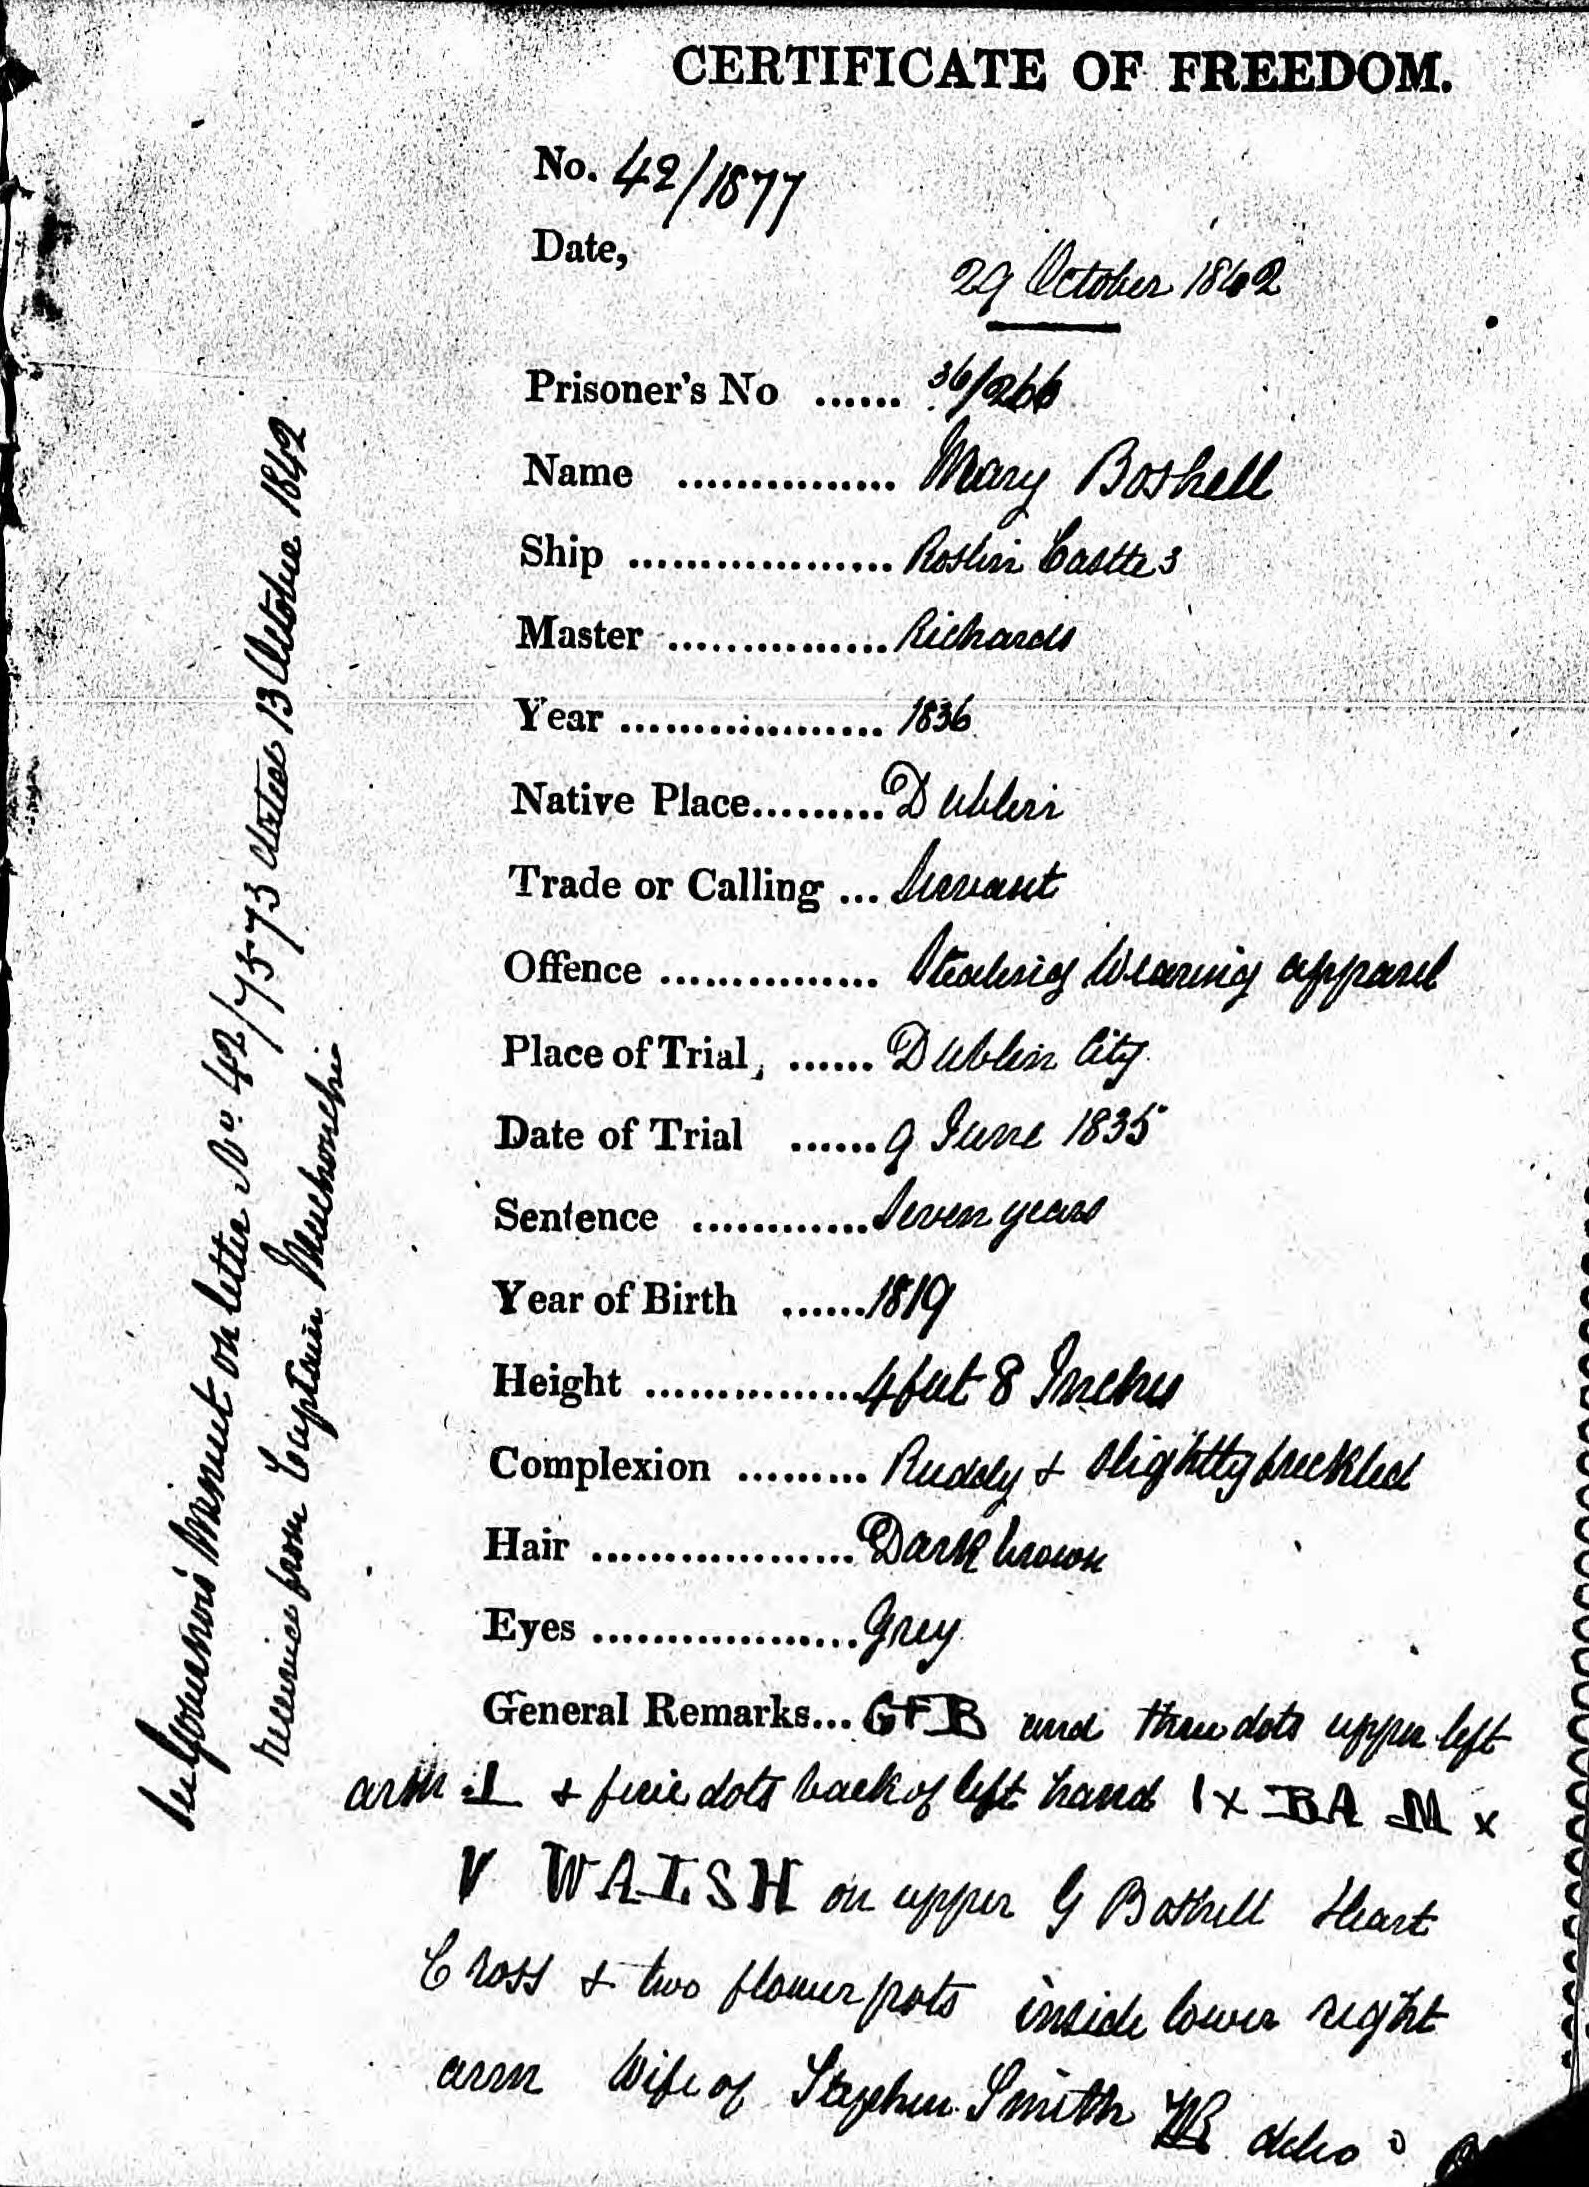 CERTIFICATE OF FREEDOM.
No. 42/1877
Date,
29 October 1842
Prisoner's No ...... 36/266
Name ............... Mary Boshell
Ship .................. Roslin Castle 3
Master ............... Richards
Year .................. 1836
Native Place......... Dublin
Trade or Calling ... Servant
Offence ............... Stealing Wearing apparel
Place of Trial, ...... Dublin City
Date of Trial ...... 9 June 1835
Sentence ............ Seven years
Year of Birth ...... 1819
Height ............... 4 feet 8 Inches
Complexion ......... Ruddy & slightly freckled
Hair .................. Dark brown
Eyes .................. Grey
General Remarks... GFB and three dots upper left
arm I & five dots back of left hand 1 x BA M x
V WALSH on upper G Boshell Heart
Cross & two flower pots inside lower right
arm Wife of Stephen Smith
Governor's Minute on letter No 42/7573 dated 13 October 1842
from Captain